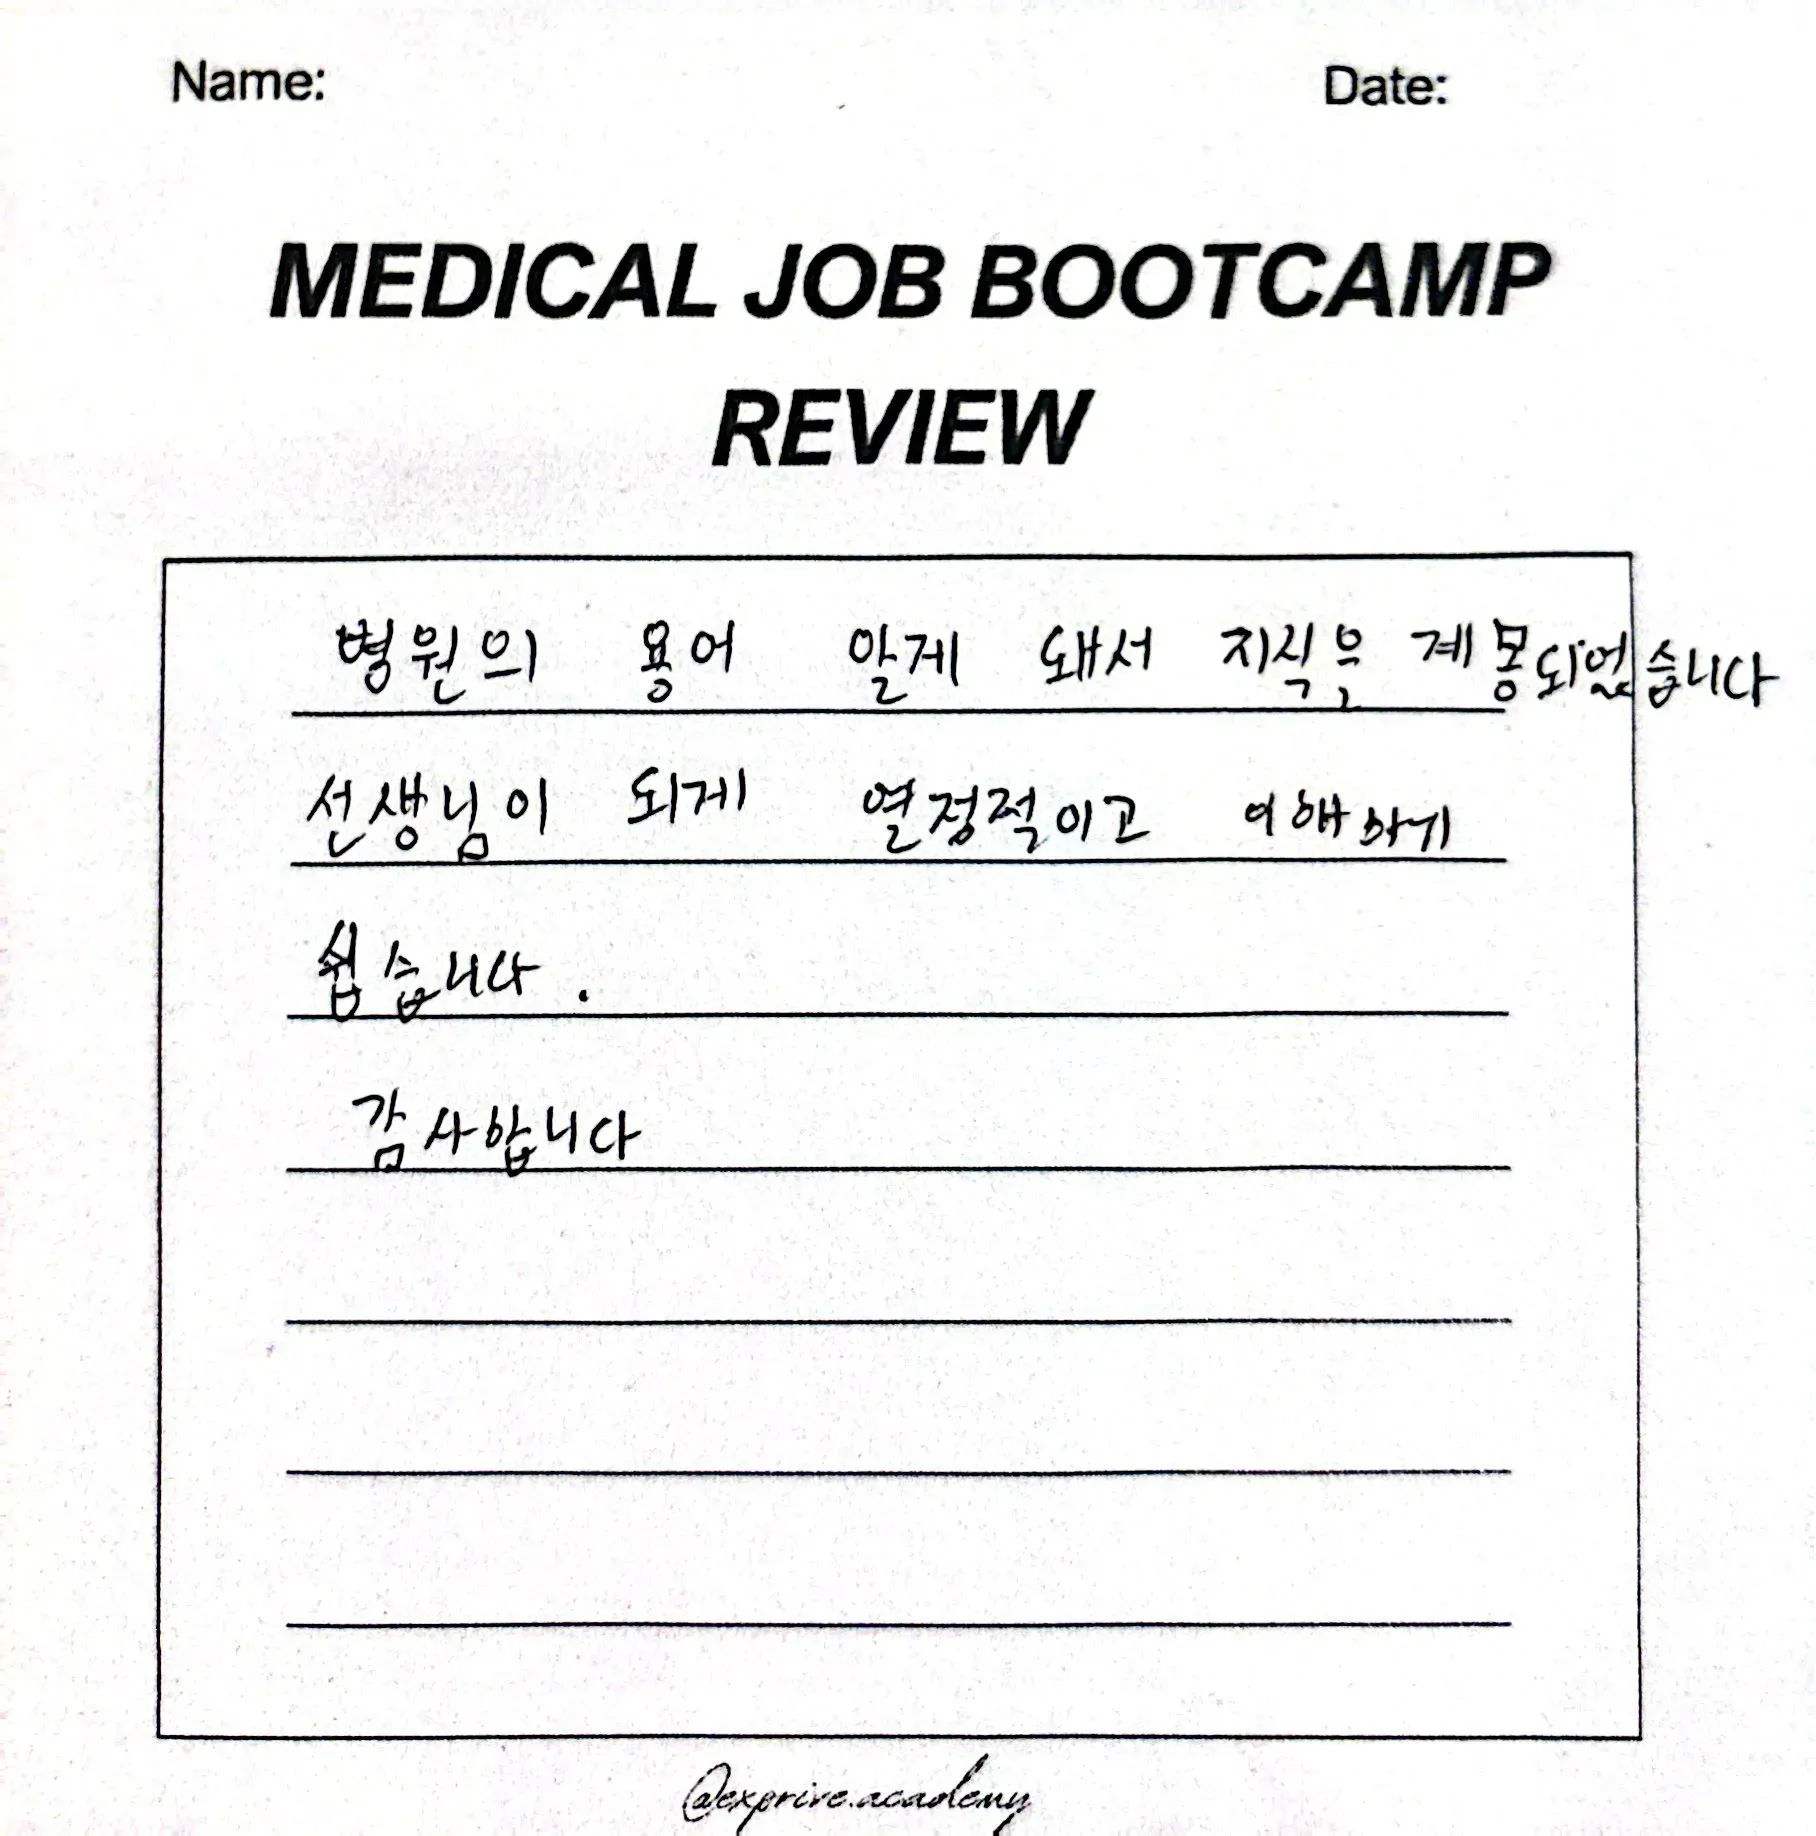 Name: Date:
MEDICAL JOB BOOTCAMP
REVIEW
병원의 용어 알게 돼서 지식은 계몽되었습니다
선생님이 되게 열정적이고 이해하기
쉽습니다.
감사합니다
@exprive.academy